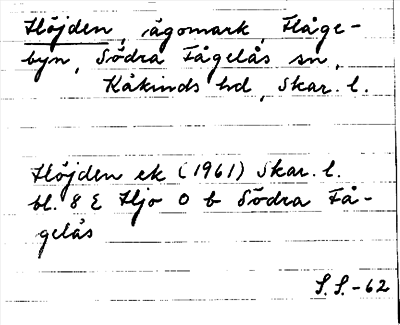 Höjden, ägomark, Håge-
byn, Södra Fågelås sn,
Kåkinds hd, Skar. l.
Höjden ek (1961) Skar. l.
bl. 8 E Hjo 0 b Södra Få-
gelås
S.S.-62